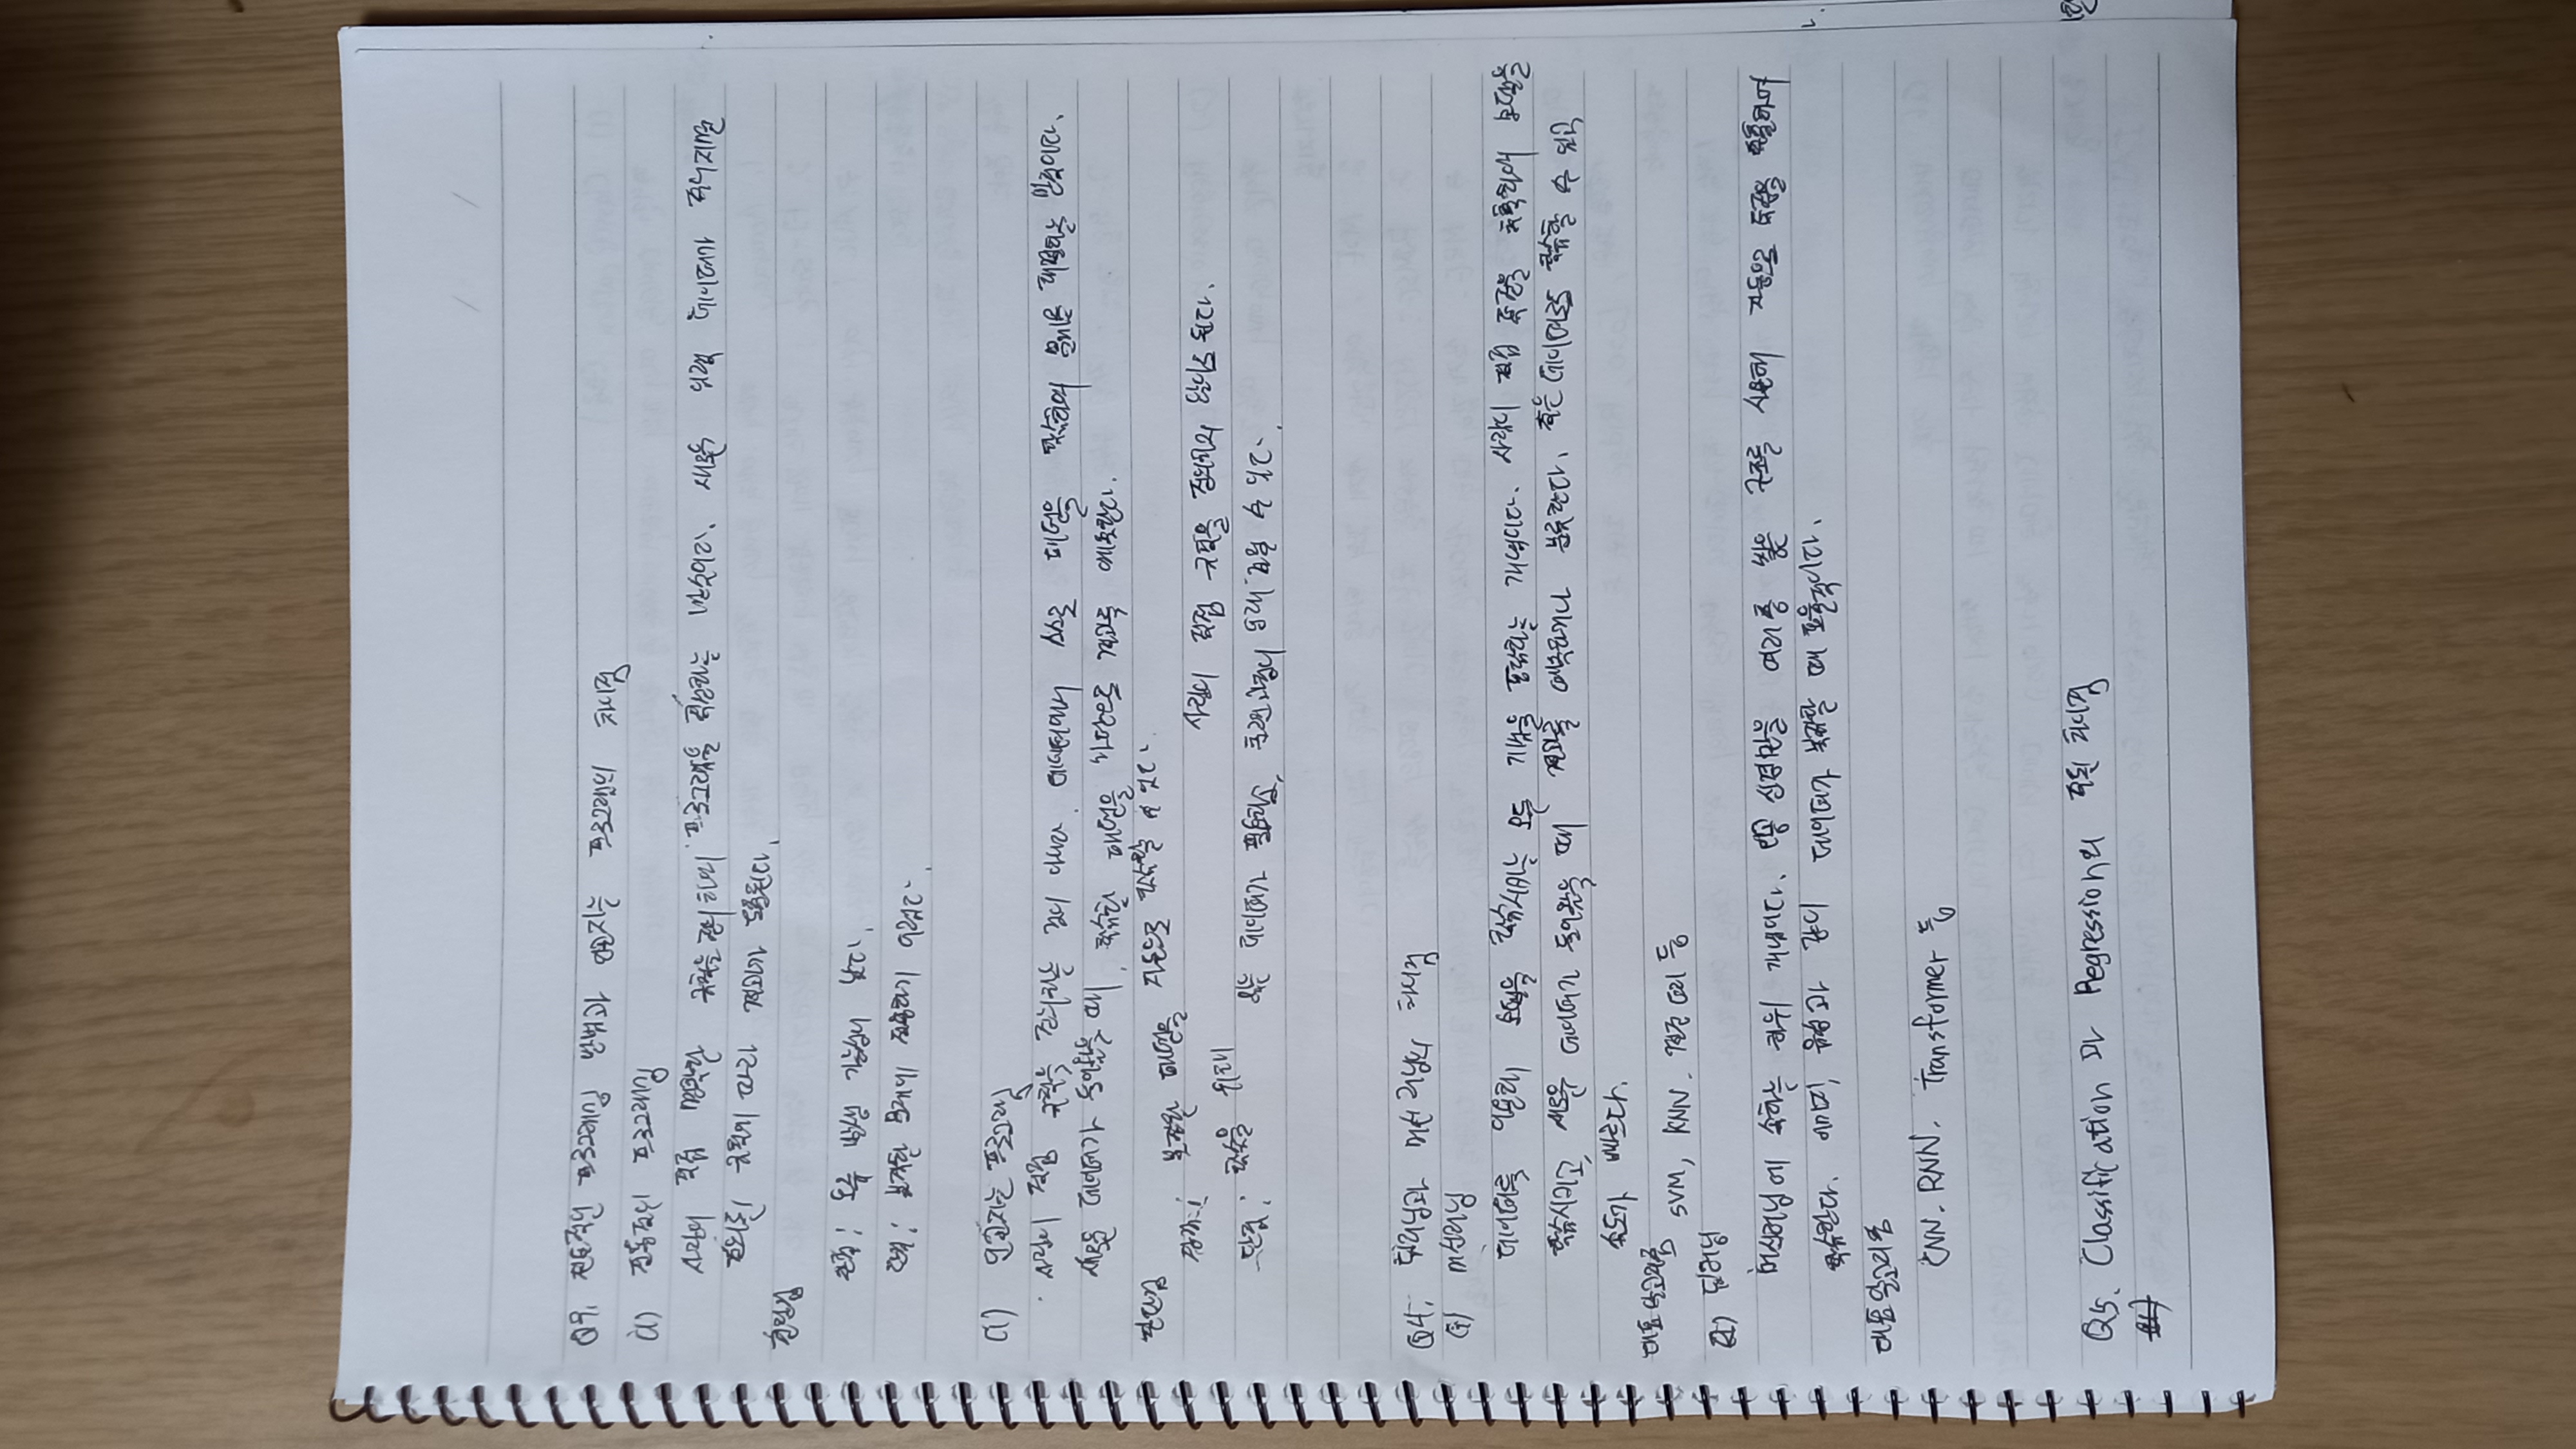 전통적인 프로그래밍 방법과 인공지능 프로그램의 차이점
전통적인 프로그래밍
사람이 직접 명확한 규칙을 정의하여 프로그램을 작성하는 방식이다. 새로운 입력 데이터가 주어지면
정의된 규칙에 따라 결과가 도출된다.
장단점
장점: 오류 발생 가능성이 낮다.
단점: 복잡한 문제에 적용하기 어렵다.
인공지능 프로그램
사람이 직접 규칙을 정의하는 것이 아니라 데이터에서 스스로 패턴을 학습하여 문제를 해결하는 방식이다.
새로운 데이터가 들어왔을 때, 학습한 패턴을 바탕으로 결과를 예측한다.
장단점
장점: 복잡한 패턴을 자동으로 학습할 수 있다.
사람이 직접 규칙을 정의하지 않아도 된다.
단점: 학습을 위해 많은 데이터가 필요하고, 훈련과정이 오래 걸릴 수 있다.
Q4. 딥러닝과 머신러닝의 차이점
머신러닝
데이터를 이용해 모델을 학습시키는 모든 기법을 포함하는 개념이다. 사람이 직접 특징을 추출하여 모델을
학습시키고, 새로운 데이터가 들어왔을 때 결과를 예측하거나 분류한다. 적은 데이터로도 학습할 수 있고
속도가 빠르다.
대표 알고리즘
SVM, KNN, 결정 트리 등
딥러닝
머신러닝에 속하는 하위 개념이다. 인공 신경망을 여러 층 쌓은 구조를 사용해 자동으로 특징을 추출하여
학습한다. 이미지, 음성과 같이 데이터가 복잡할 때 효율적이다.
대표 알고리즘
CNN, RNN, Transformer 등
Q5. Classification 과 Regression의 주된 차이점